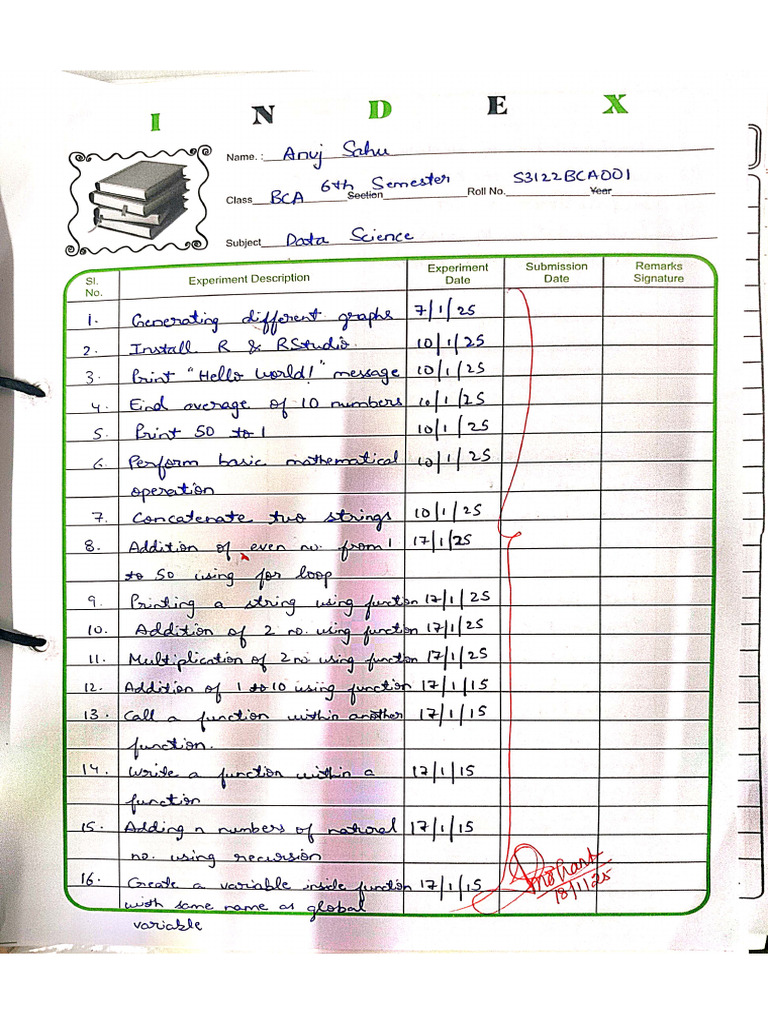 I N D E X
Name. : Anuj Sahu
Class BCA 6th Semester Section Roll No. S3122BCA001 Year
Subject Data Science
Sl. No. Experiment Description Experiment Date Submission Date Remarks Signature
1. Generating different graphs 7/1/25
2. Install R & RStudio. 10/1/25
3. Print "Hello World!" message 10/1/25
4. Find average of 10 numbers 10/1/25
5. Print 50 to 1 10/1/25
6. Perform basic mathematical 10/1/25
operation
7. Concatenate two strings 10/1/25
8. Addition of even no. from 1 17/1/25
to 50 using for loop
9. Printing a string using function 17/1/25
10. Addition of 2 no. using function 17/1/25
11. Multiplication of 2 no. using function 17/1/25
12. Addition of 1 to 10 using function 17/1/15
13. Call a function within another 17/1/15
function.
14. Write a function within a 17/1/15
function
15. Adding n numbers of natural 17/1/15
no. using recursion
16. Create a variable inside function 17/1/15
with same name as global
variable
18/1/25